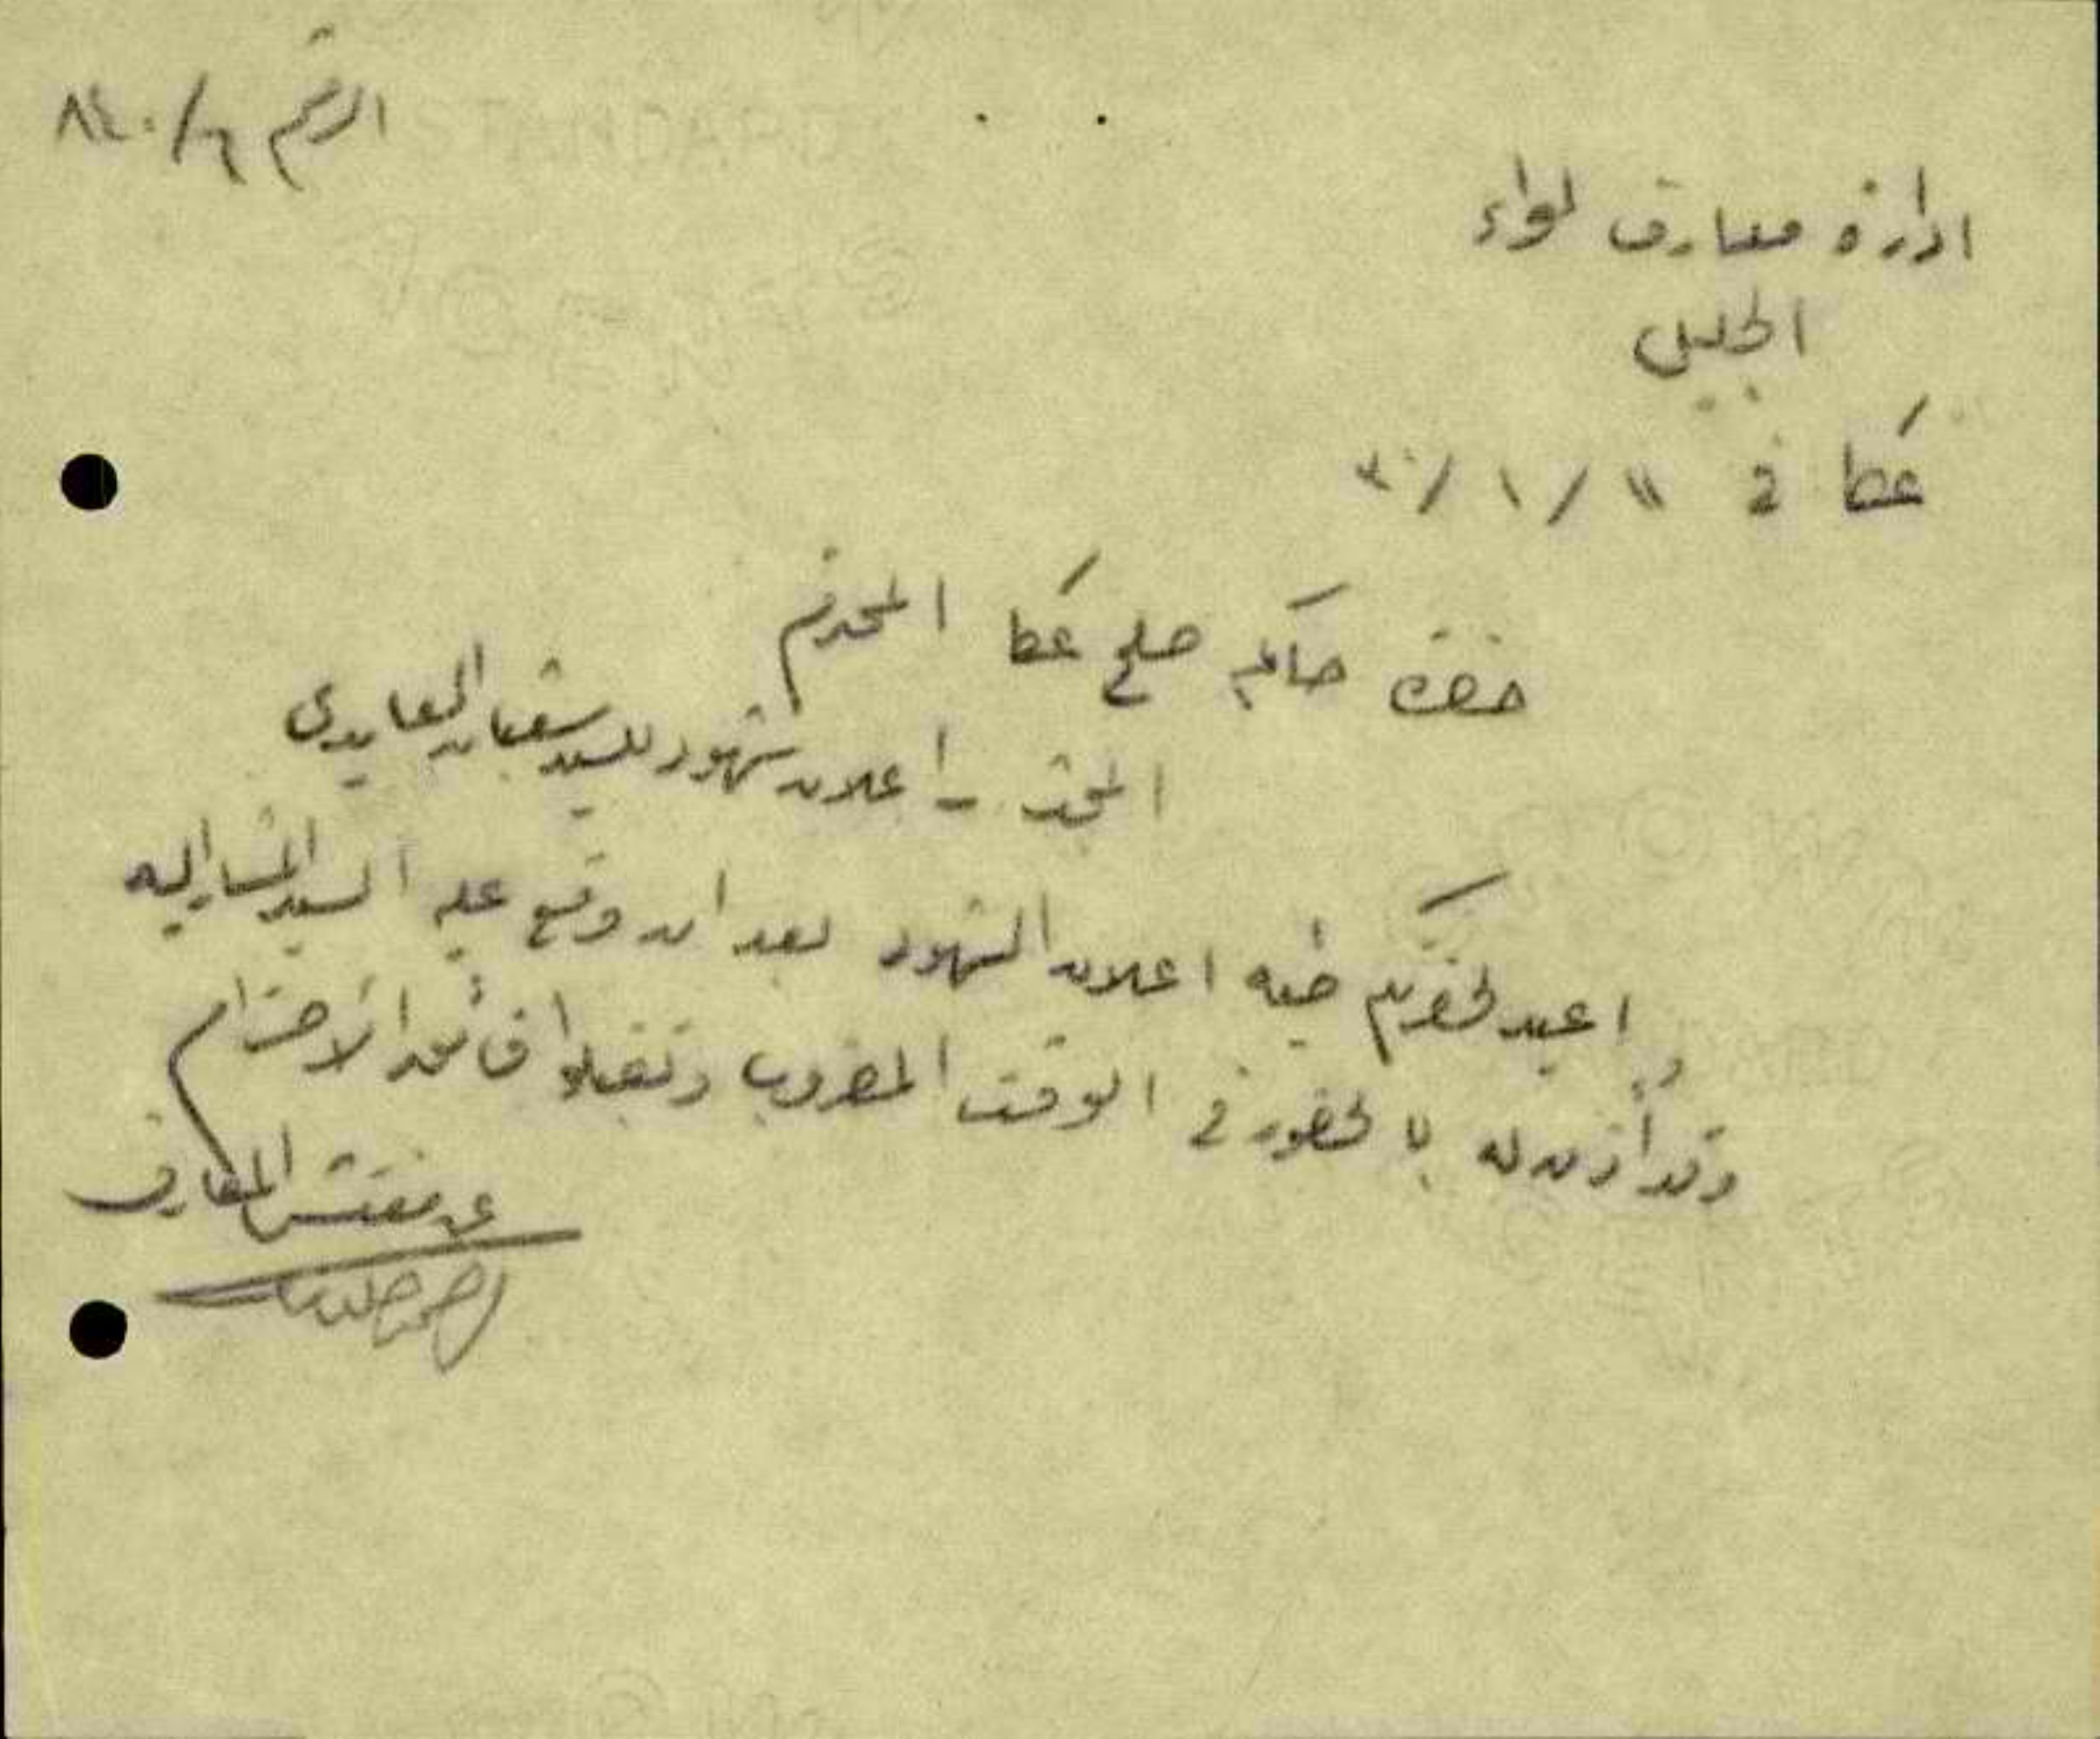 الرقم ٨٤٠/٦
ادارة معارف لواء
الجليل
عكا في ١١ / ١ / ٣٠
حضرة حاكم صلح عكا المحترم
المبحث - اعلان شهود للسيد شعبان العايدي
اعيد لحضرتكم طيه اعلان الشهود بعد ان وقع عليه السيد المشار اليه
وقد أذن له بالحضور في الوقت المضروب وتفضلوا فائق الاحترام
عن مفتش المعارف